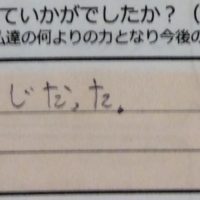 ていかがでしたか？（
達の何よりの力となり今後の
じだった.